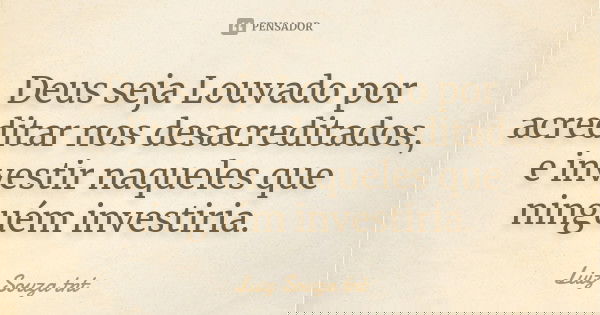 PENSADOR
Deus seja Louvado por
acreditar nos desacreditados,
e investir naqueles que
ninguém investiria.
Luiz Souza tnt